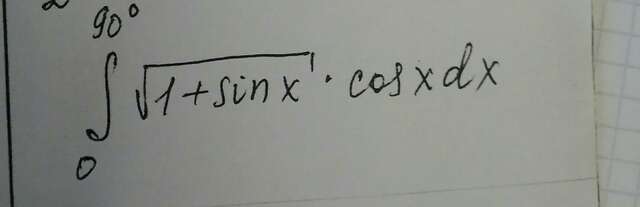 90°
∫ √1+sinx · cosxdx
0